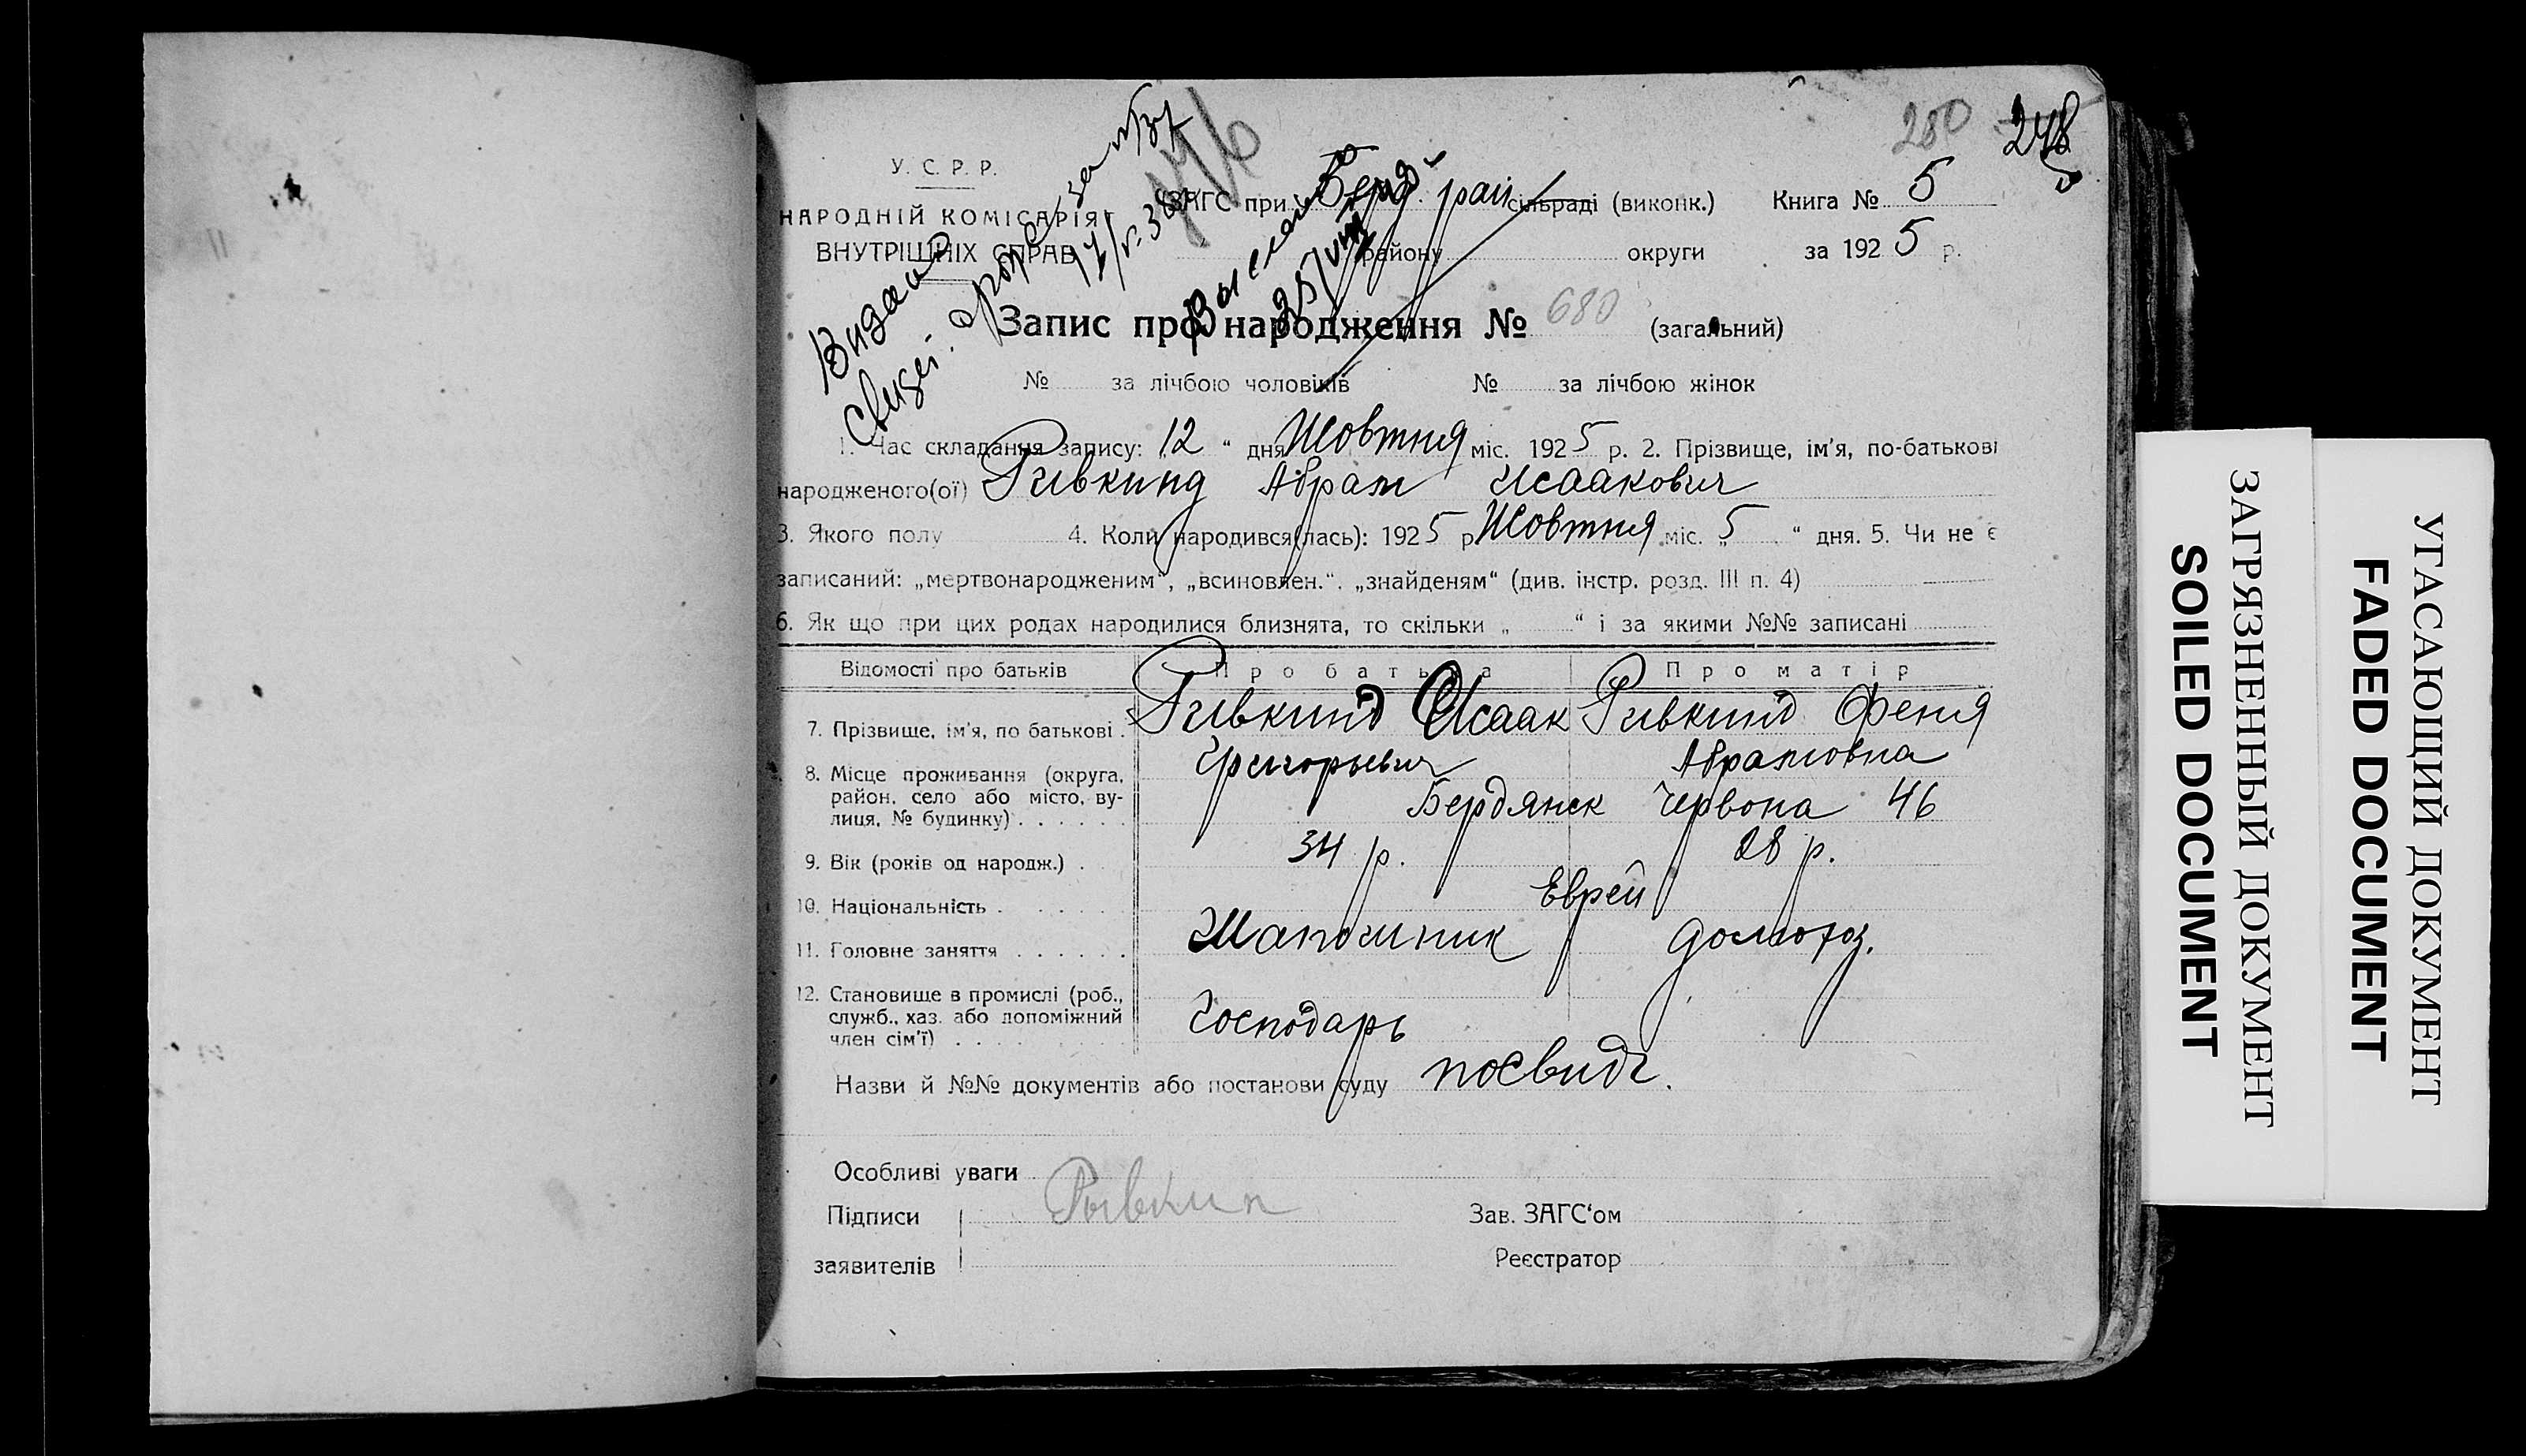 280 248
У. С. Р. Р.
НАРОДНІЙ КОМІСАРІЯТ
ВНУТРІШНІХ СПРАВ
ЗАГС при Берд. рай сільраді (виконк.) Книга № 5
району округи за 1925 р.
Видано
свідоц.
Выслан
Запис про народження № 680 (загальний)
№ за лічбою чоловіків № за лічбою жінок
1. Час складання запису: „12“ дня Жовтня міс. 1925 р. 2. Прізвище, ім'я, по-батькові
народженого(ої) Ривкинд Абрам Исаакович
3. Якого полу 4. Коли народився(лась): 1925 р Жовтня міс. „5“ дня. 5. Чи не є
записаний: „мертвонародженим“, „всиновлен.“. „знайденям“ (див. інстр. розд. III п. 4)
6. Як що при цих родах народилися близнята, то скільки „ “ і за якими №№ записані
Відомості про батьків Про батька Про матір
7. Прізвище, ім'я, по батькові . Ривкинд Исаак Ривкинд Феня
Григорьевич Абрамовна
8. Місце проживання (округа,
район, село або місто, ву-
лиця, № будинку) . . . . . . Бердянск Червона 46
9. Вік (років од народж.) . 34 р. 28 р.
10. Національність . . . . . Еврей
11. Головне заняття . . . . . . Шапошник домохоз.
12. Становище в промислі (роб.,
служб., хаз. або допоміжний
член сім'ї) . . . . . . . . Господарь
Назви й №№ документів або постанови суду посвидч.
Особливі уваги
Підписи Рывкин Зав. ЗАГС‘ом
заявителів Реєстратор
ЗАГРЯЗНЕННЫЙ ДОКУМЕНТ
SOILED DOCUMENT
УГАСАЮЩИЙ ДОКУМЕНТ
FADED DOCUMENT